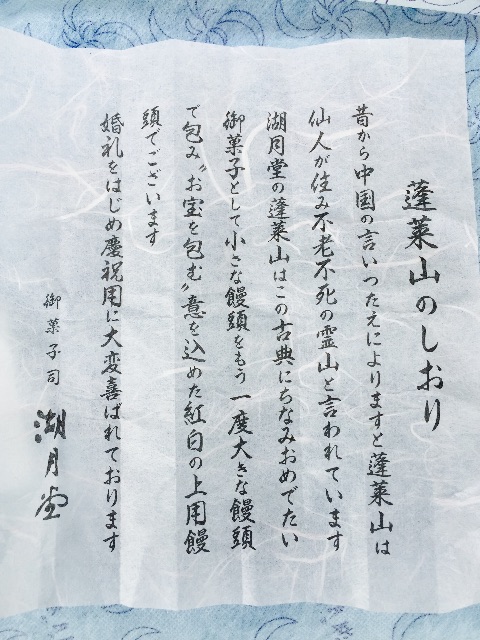 蓬莱山のしおり
昔から中国の言いつたえによりますと蓬莱山は
仙人が住み不老不死の霊山と言われています
湖月堂の蓬莱山はこの古典にちなみおめでたい
御菓子として小さな饅頭をもう一度大きな饅頭
で包み〝お宝を包む〟意を込めた紅白の上用饅
頭でございます
婚礼をはじめ慶祝用に大変喜ばれております
御菓子司
湖月堂